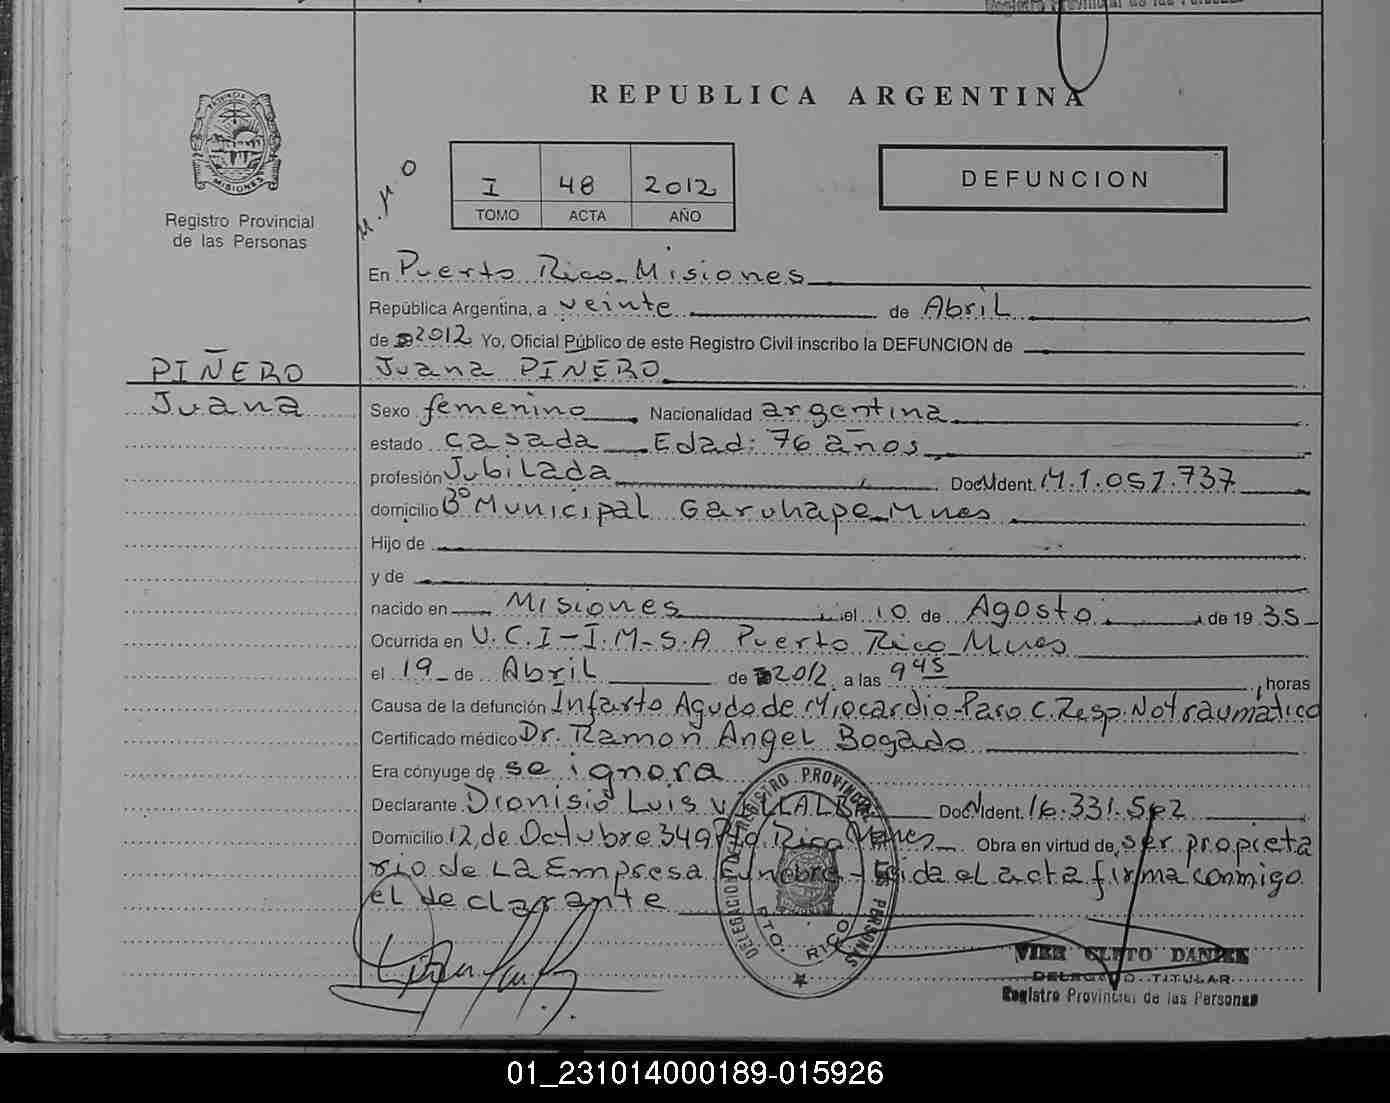 Registro Provincial de las Personas
REPUBLICA ARGENTINA
PROVINCIA DE MISIONES
Registro Provincial
de las Personas
M.M.O
I 48 2012
TOMO ACTA AÑO
DEFUNCION
En Puerto Rico Misiones
República Argentina, a veinte de Abril
de 2012 Yo, Oficial Público de este Registro Civil inscribo la DEFUNCION de
PIÑERO
Juana PIÑERO
Juana
Sexo femenino Nacionalidad argentina
estado casada Edad: 76 años
profesión Jubilada Doc. Ident. M.1.051.737
domicilio Bº Municipal Garuhape Mnes
Hijo de
y de
nacido en Misiones el 10 de Agosto de 1935
Ocurrida en U.C.I-I.M.S.A Puerto Rico Mnes
el 19 de Abril de 2012 a las 9 45 horas
Causa de la defunción Infarto Agudo de Miocardio-Paro C. Resp. No traumatico
Certificado médico Dr. Ramon Angel Bogado
Era cónyuge de se ignora
Declarante Dionisio Luis VILLALBA Doc. Ident. 16.331.562
Domicilio 12 de Octubre 349 Pto. Rico Mnes Obra en virtud de ser propieta
rio de La Empresa Funebre - Leida el acta firma conmigo
el declarante
DELEGACION DEL REGISTRO PROVINCIAL DE LAS PERSONAS
PTO. RICO
VIER CLETO DANIEL
DELEGADO TITULAR
Registro Provincial de las Personas
01_231014000189-015926